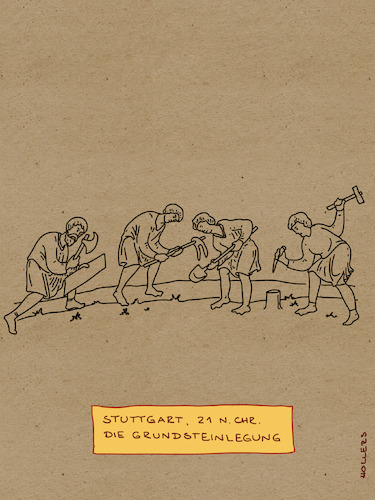 STUTTGART, 21 N. CHR.
DIE GRUNDSTEINLEGUNG
HOLLERS